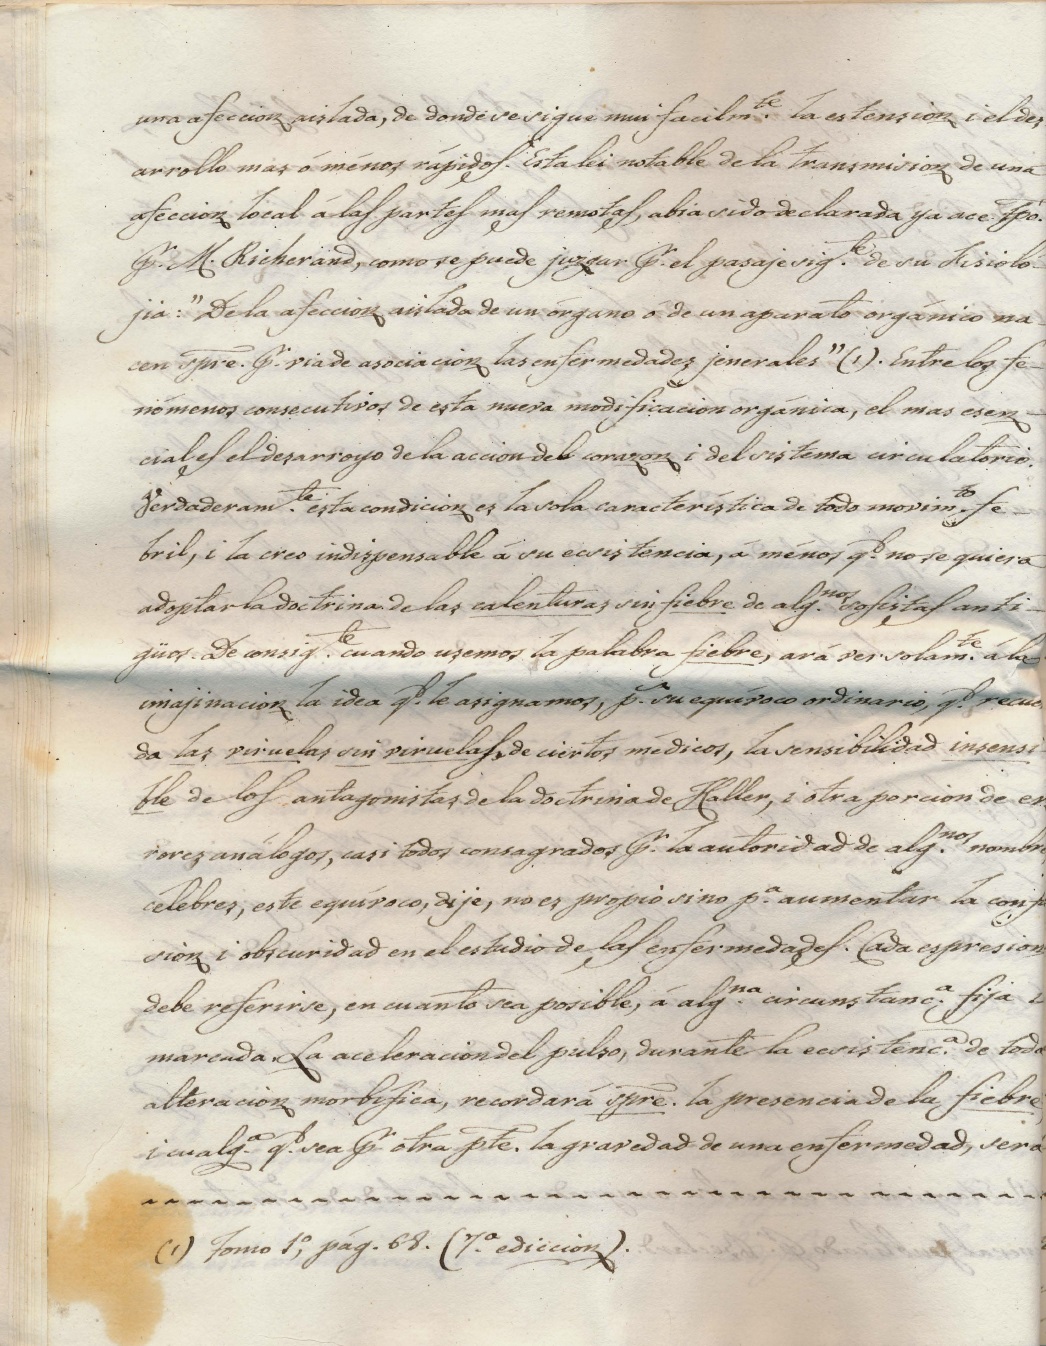 una afeccion aislada, de donde se sigue mui facilmte. la estension i el des
arrollo mas ó ménos rápidos. Esta lei notable de la transmision de una
afeccion local á las partes mas remotas, abia sido declarada ya ace tpo.
pr. M. Richerand, como se puede juzgar pr. el pasaje sigte. de su Fisiolo-
jia: "De la afeccion aislada de un órgano ó de un aparato orgánico na-
cen spre. pr. via de asociacion las enfermedades jenerales" (1). Entre los fe-
nómenos consecutivos de esta nueva modificacion orgánica, el mas esen-
cial es el desarroyo de la accion del corazon i del sistema circulatorio.
Verdaderamte. esta condicion es la sola característica de todo movimto. fe-
bril, i la creo indispensable á su ecsistencia, á ménos qe. no se quiera
adoptar la doctrina de las calenturas sin fiebre de algnos. sofistas anti-
güos. De consigte. cuando usemos la palabra fiebre, ará ver solamte. á la
imajinacion la idea qe. le asignamos, pr. su equívoco ordinario, qe. recuer
da las viruelas sin viruelas, de ciertos médicos, la sensibilidad insensi
ble de los antagonistas de la doctrina de Haller, i otra porcion de er
rores análogos, casi todos consagrados pr. la autoridad de algnos. nombre
célebres, este equívoco, dije, no es propio sino pa. aumentar la confu
sion i obscuridad en el estudio de las enfermedades. Cada espresion
debe referirse, en cuanto sea posible, á algna. circunstanca. fija i
marcada. La aceleracion del pulso, durante la ecsistenca. de toda
alteracion morbifica, recordará spre. la presencia de la fiebre,
i cualqa. qe. sea pr. otra pte. la gravedad de una enfermedad, será
(1) Tomo 1º, pág. 68. (7.a ediccion).